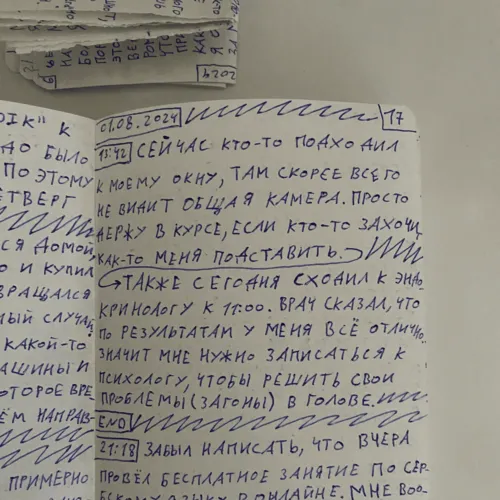 2024
ДІК" К
ДО БЫЛО
ПО ЭТОМУ
ЕТВЕРГ
СЯ ДОМОЙ,
О И КУПИЛ
ВРАЩАЛСЯ
НЫЙ СЛУЧАЙ
КАКОЙ-ТО
АШИНЫ И
ОТОРОЕ ВРЕ
ЁМ НАПРАВ-
ПРИМЕРНО
01.08.2024 17
13:42 СЕЙЧАС КТО-ТО ПОДХОДИЛ
К МОЕМУ ОКНУ, ТАМ СКОРЕЕ ВСЕГО
НЕ ВИДИТ ОБЩАЯ КАМЕРА. ПРОСТО
ДЕРЖУ В КУРСЕ, ЕСЛИ КТО-ТО ЗАХОЧИ
КАК-ТО МЕНЯ ПОДСТАВИТЬ.
ТАКЖЕ СЕГОДНЯ СХОДИЛ К ЭНДО
КРИНОЛОГУ К 11:00. ВРАЧ СКАЗАЛ, ЧТО
ПО РЕЗУЛЬТАТАМ У МЕНЯ ВСЁ ОТЛИЧНО.
ЗНАЧИТ МНЕ НУЖНО ЗАПИСАТЬСЯ К
ПСИХОЛОГУ, ЧТОБЫ РЕШИТЬ СВОИ
ПРОБЛЕМЫ (ЗАГОНЫ) В ГОЛОВЕ.
END
21:18 ЗАБЫЛ НАПИСАТЬ, ЧТО ВЧЕРА
ПРОВЁЛ БЕСПЛАТНОЕ ЗАНЯТИЕ ПО СЕР-
БСКОМУ ЯЗЫКУ В ОНЛАЙНЕ. МНЕ ВОО-